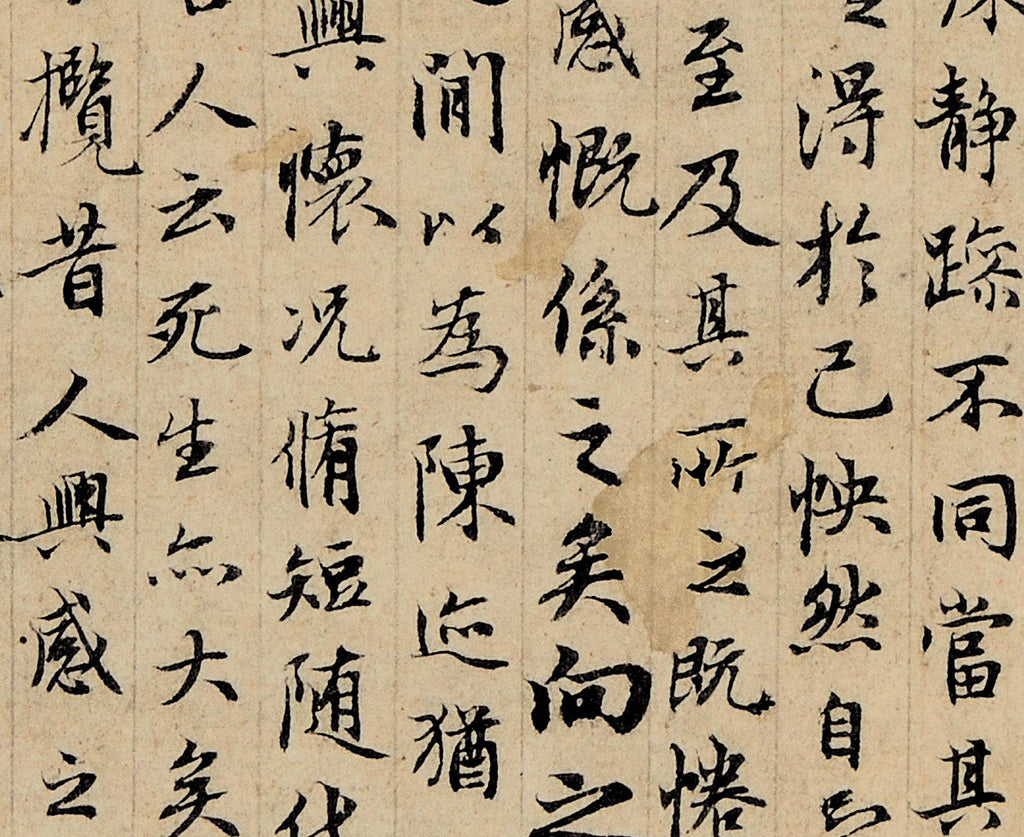 静躁不同當其
得於己怏然自
至及其所之既惓
感慨係之矣向之
閒以為陳迹猶
興懷况脩短随化
人云死生亦大矣
攬昔人興感之